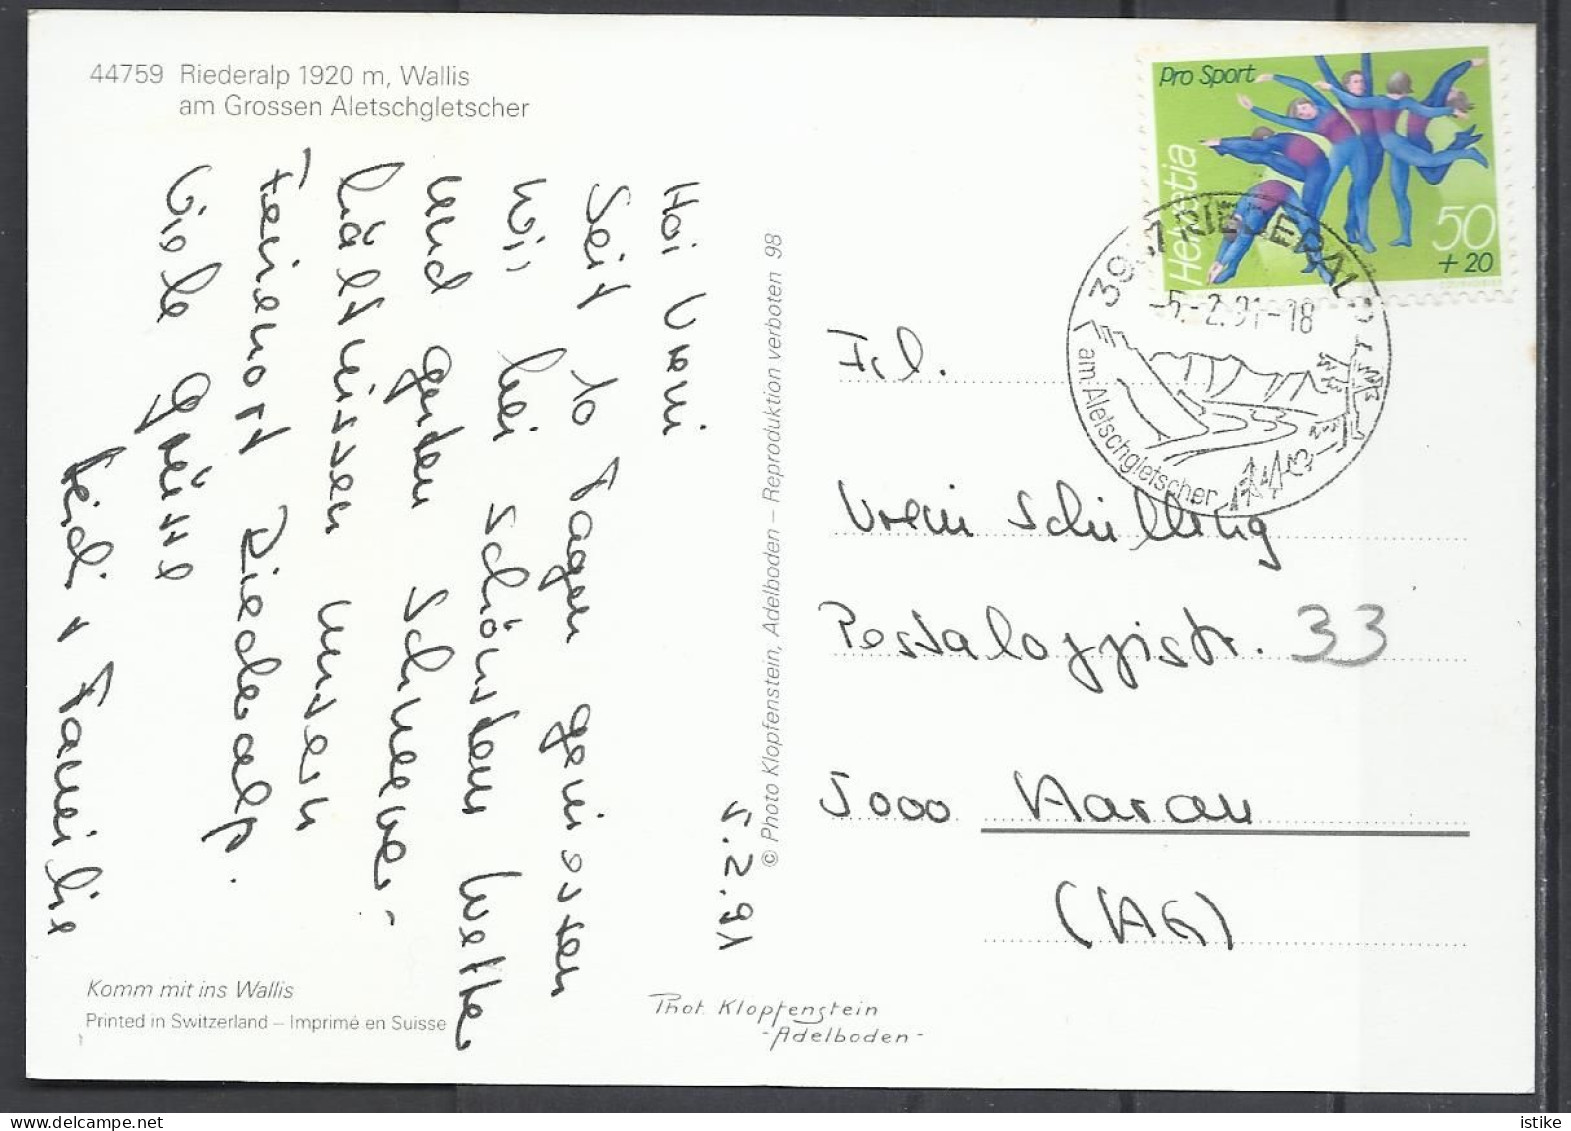 44759 Riederalp 1920 m, Wallis
am Grossen Aletschgletscher
5.2.91
Hoi Vreni
Seit 10 Tagen geniessen
wir bei schönstem Wetter
und guten Schneever-
hältnissen unsern
Ferienort Riederalp.
Viele Grüsse
Heidi + Familie
Komm mit ins Wallis
Printed in Switzerland – Imprimé en Suisse
© Photo Klopfenstein, Adelboden – Reproduktion verboten 98
Phot. Klopfenstein
- Adelboden -
Pro Sport
Helvetia
50
+ 20
RIEDERALP
-5.-2.91-18
am Aletschgletscher
Frl.
Vreni Schilling
Pestalozzistr. 33
5000 Aarau
(AG)
istike